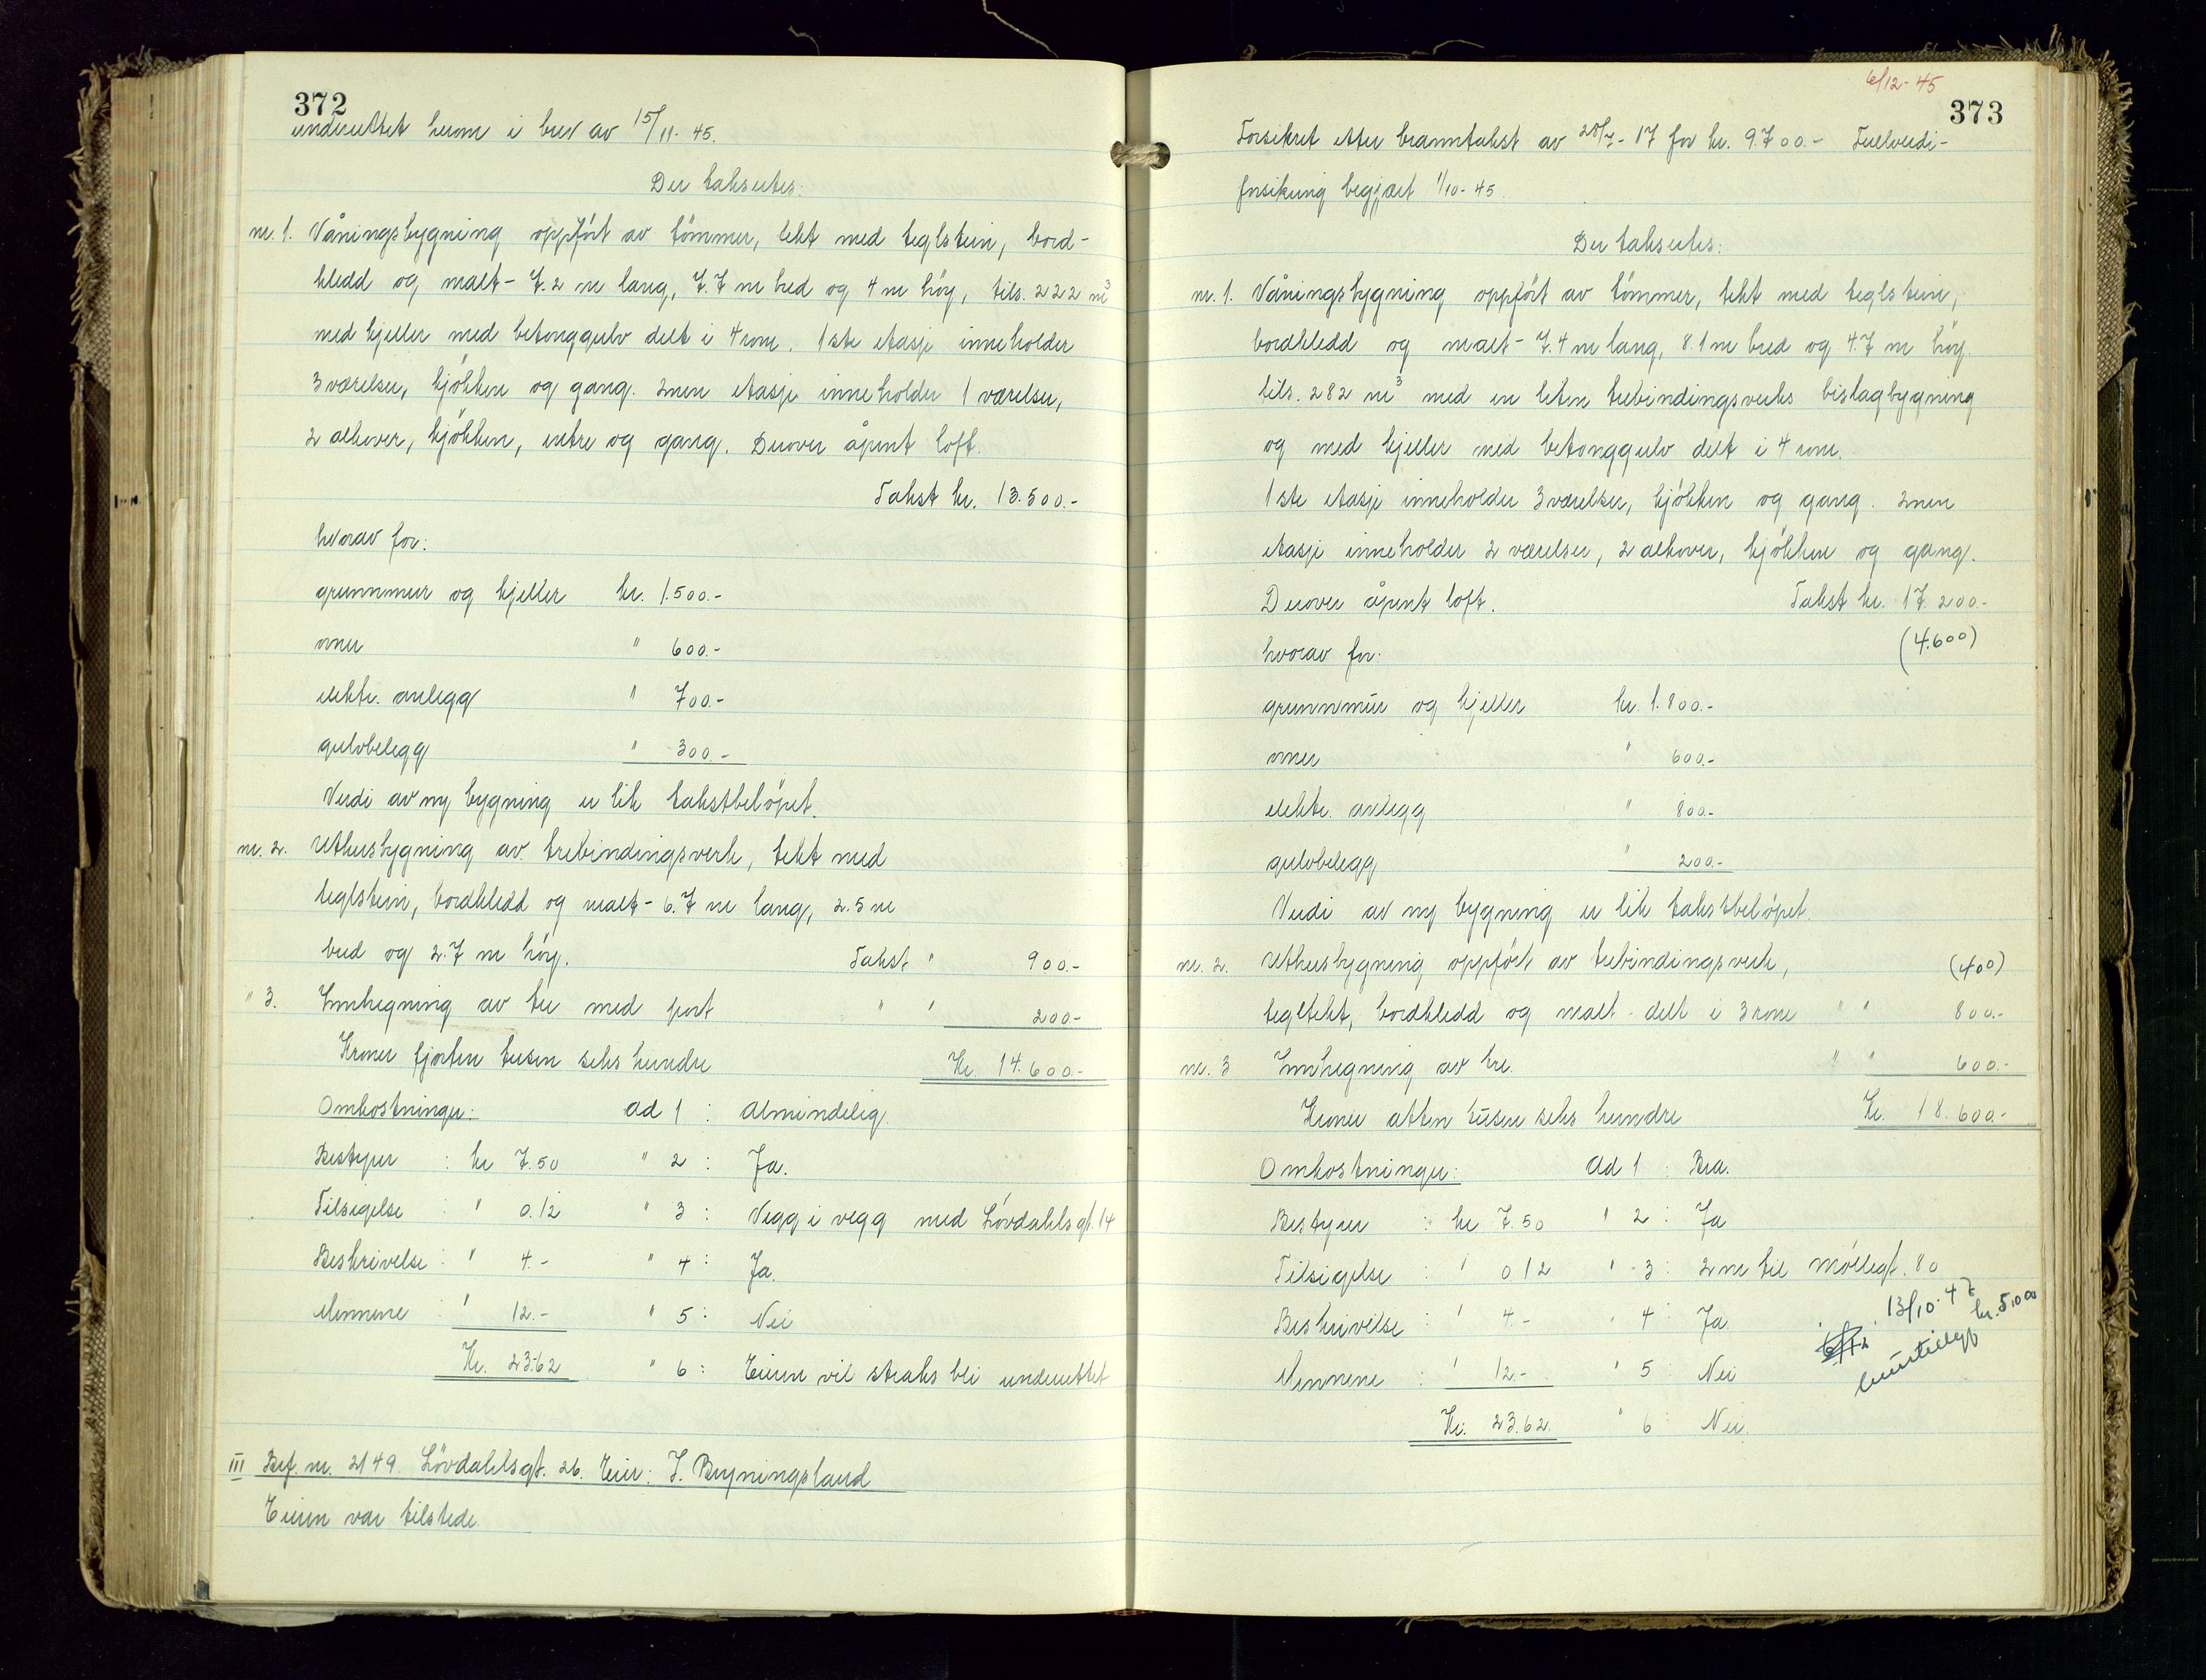 372
underrettet herom i brev av 15/11-45.
Der takseres:
nr. 1. Våningsbygning oppført av tömmer, tekt med teglstein, bord-
kledd og malt - 7.2 m lang, 7.7 m bred og 4 m höy, tils. 222 m³
med kjeller med betonggulv delt i 4 rom. 1ste etasje inneholder
3 værelser, kjökken og gang. 2nen etasje inneholder 1 værelser,
2 alkover, kjökken, entre og gang. Derover åpent loft.
Takst kr. 13.500.-
hvorav for:
grunnmur og kjeller kr. 1.500.-
ovner " 600.-
elektr. anlegg " 700.-
gulvbelegg " 300.-
Verdi av ny bygning er lik takstbelöpet.
nr. 2. Uthusbygning av trebindingsverk, tekt med
teglstein, bordkledd og malt - 6.7 m lang, 2.5 m
bred og 2.7 m höy. Takst " 900.-
" 3. Innhegning av tre med port " " 200.-
Kroner fjorten tusen seks hundre Kr. 14.600.-
Omkostninger: ad 1 : Almindelig.
Bestyrer : kr 7.50 " 2 : Ja.
Tilsigelse : " 0.12 " 3 : Vegg i vegg med Lövdahlsgt. 14
Beskrivelse : " 4.- " 4 : Ja.
Mennene : " 12.- " 5 : Nei
Kr. 23.62 " 6 : Eieren vil straks bli underrettet
III Brf. nr. 2149. Lövdahlsgt. 26. Eier: J. Bryningsland
Eieren var tilstede.
6/12-45
373
Forsikret etter branntakst av 28/7-17 for kr. 9.700.- Fullverdi-
forsikring begjært 1/10-45.
Der takseres:
nr. 1. Våningsbygning oppfört av tömmer, tekt med teglstein,
bordkledd og malt - 7.4 m lang, 8.1 m bred og 4.7 m höy.
tils. 282 m³ med en liten trebindingsverks bislagbygning
og med kjeller med betonggulv delt i 4 rom.
1ste etasje inneholder 3 værelser, kjökken og gang. 2nen
etasje inneholder 2 værelser, 2 alkover, kjökken og gang.
Derover åpent loft. Takst kr. 17.200.-
hvorav for: (4.600)
grunnmur og kjeller kr. 1.800.-
ovner " 600.-
elektr. anlegg " 800.-
gulvbelegg " 200.-
Verdi av ny bygning er lik takstbelöpet.
nr. 2. Uthusbygning oppfört av trebindingsverk, (400)
tegltekt, bordkledd og malt - delt i 3 rom " " 800.-
nr. 3 Innhegning av tre. " " 600.-
Kroner atten tusen seks hundre Kr. 18.600.-
Omkostninger: ad 1 : Bra.
Bestyrer : kr 7.50 " 2 : Ja
Tilsigelse : " 0.12 " 3 : 2 m til Möllegt. 80
Beskrivelse : " 4.- " 4 : Ja.
13/10-47 kr. 5.000
Mennene : " 12.- " 5 : Nei
Kr. 23.62. " 6 Nei.